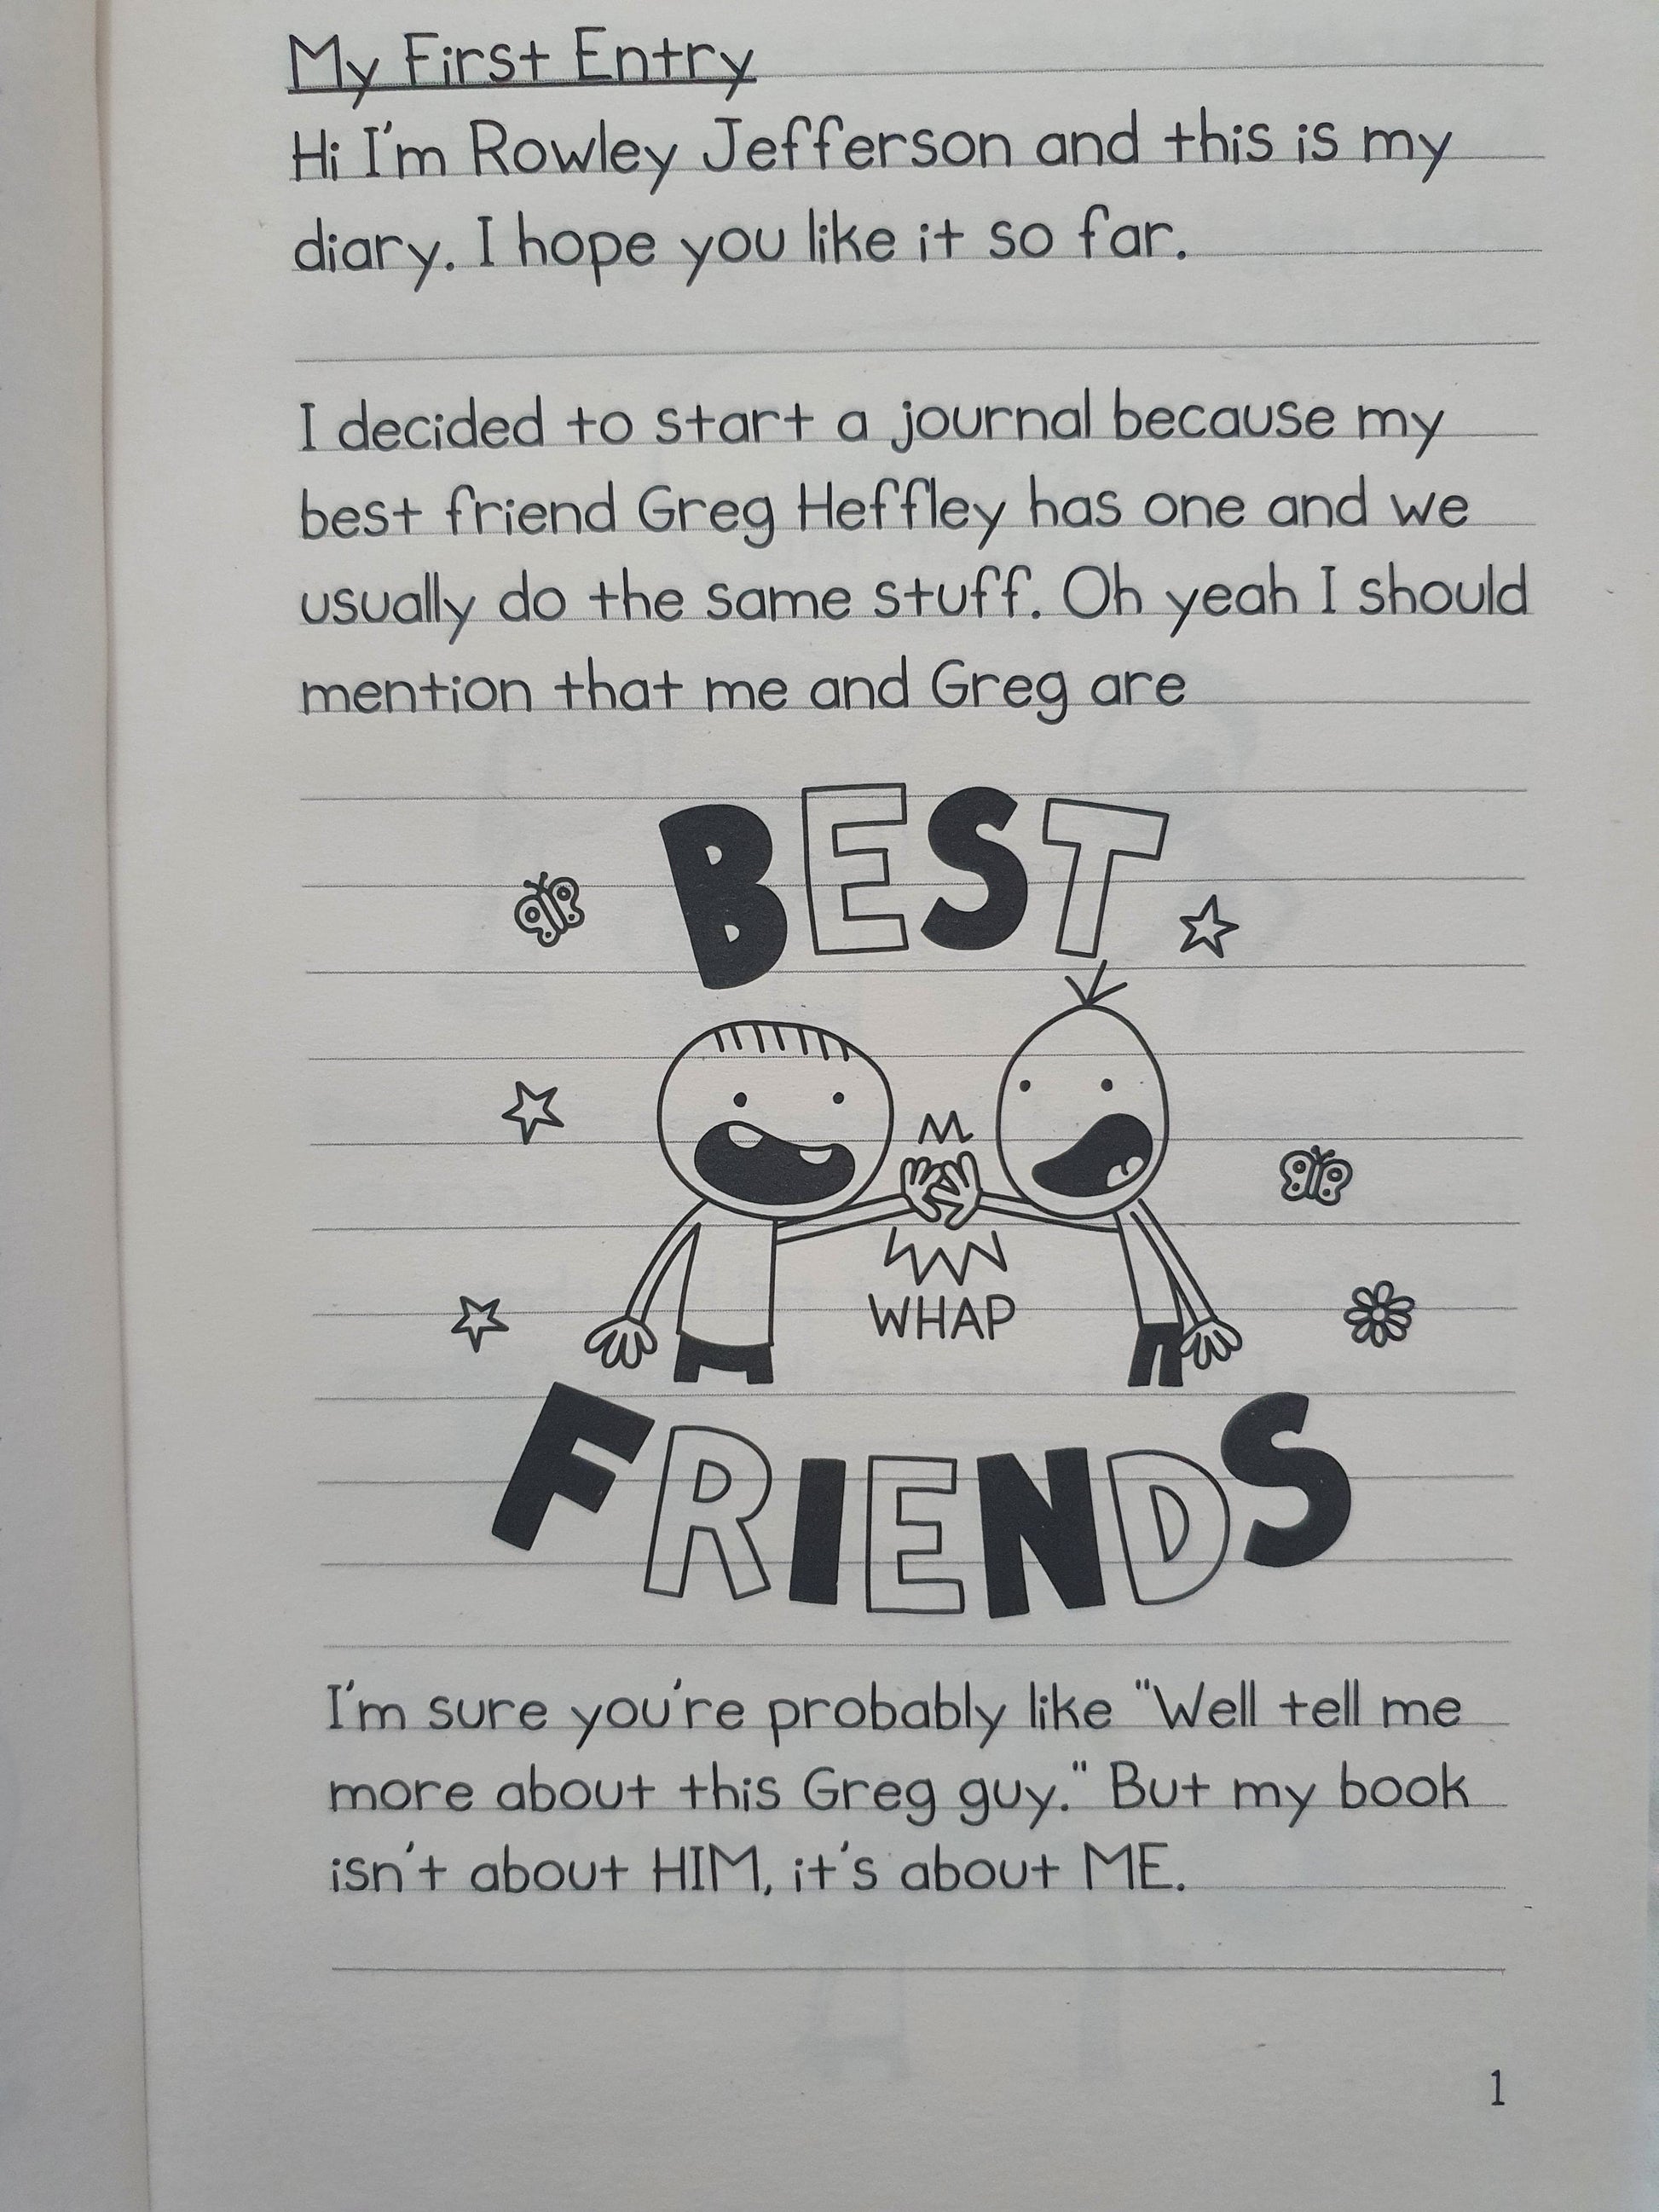 My First Entry
Hi I'm Rowley Jefferson and this is my
diary. I hope you like it so far.
I decided to start a journal because my
best friend Greg Heffley has one and we
usually do the same stuff. Oh yeah I should
mention that me and Greg are
BEST
WHAP
FRIENDS
I'm sure you're probably like "Well tell me
more about this Greg guy." But my book
isn't about HIM, it's about ME.
1